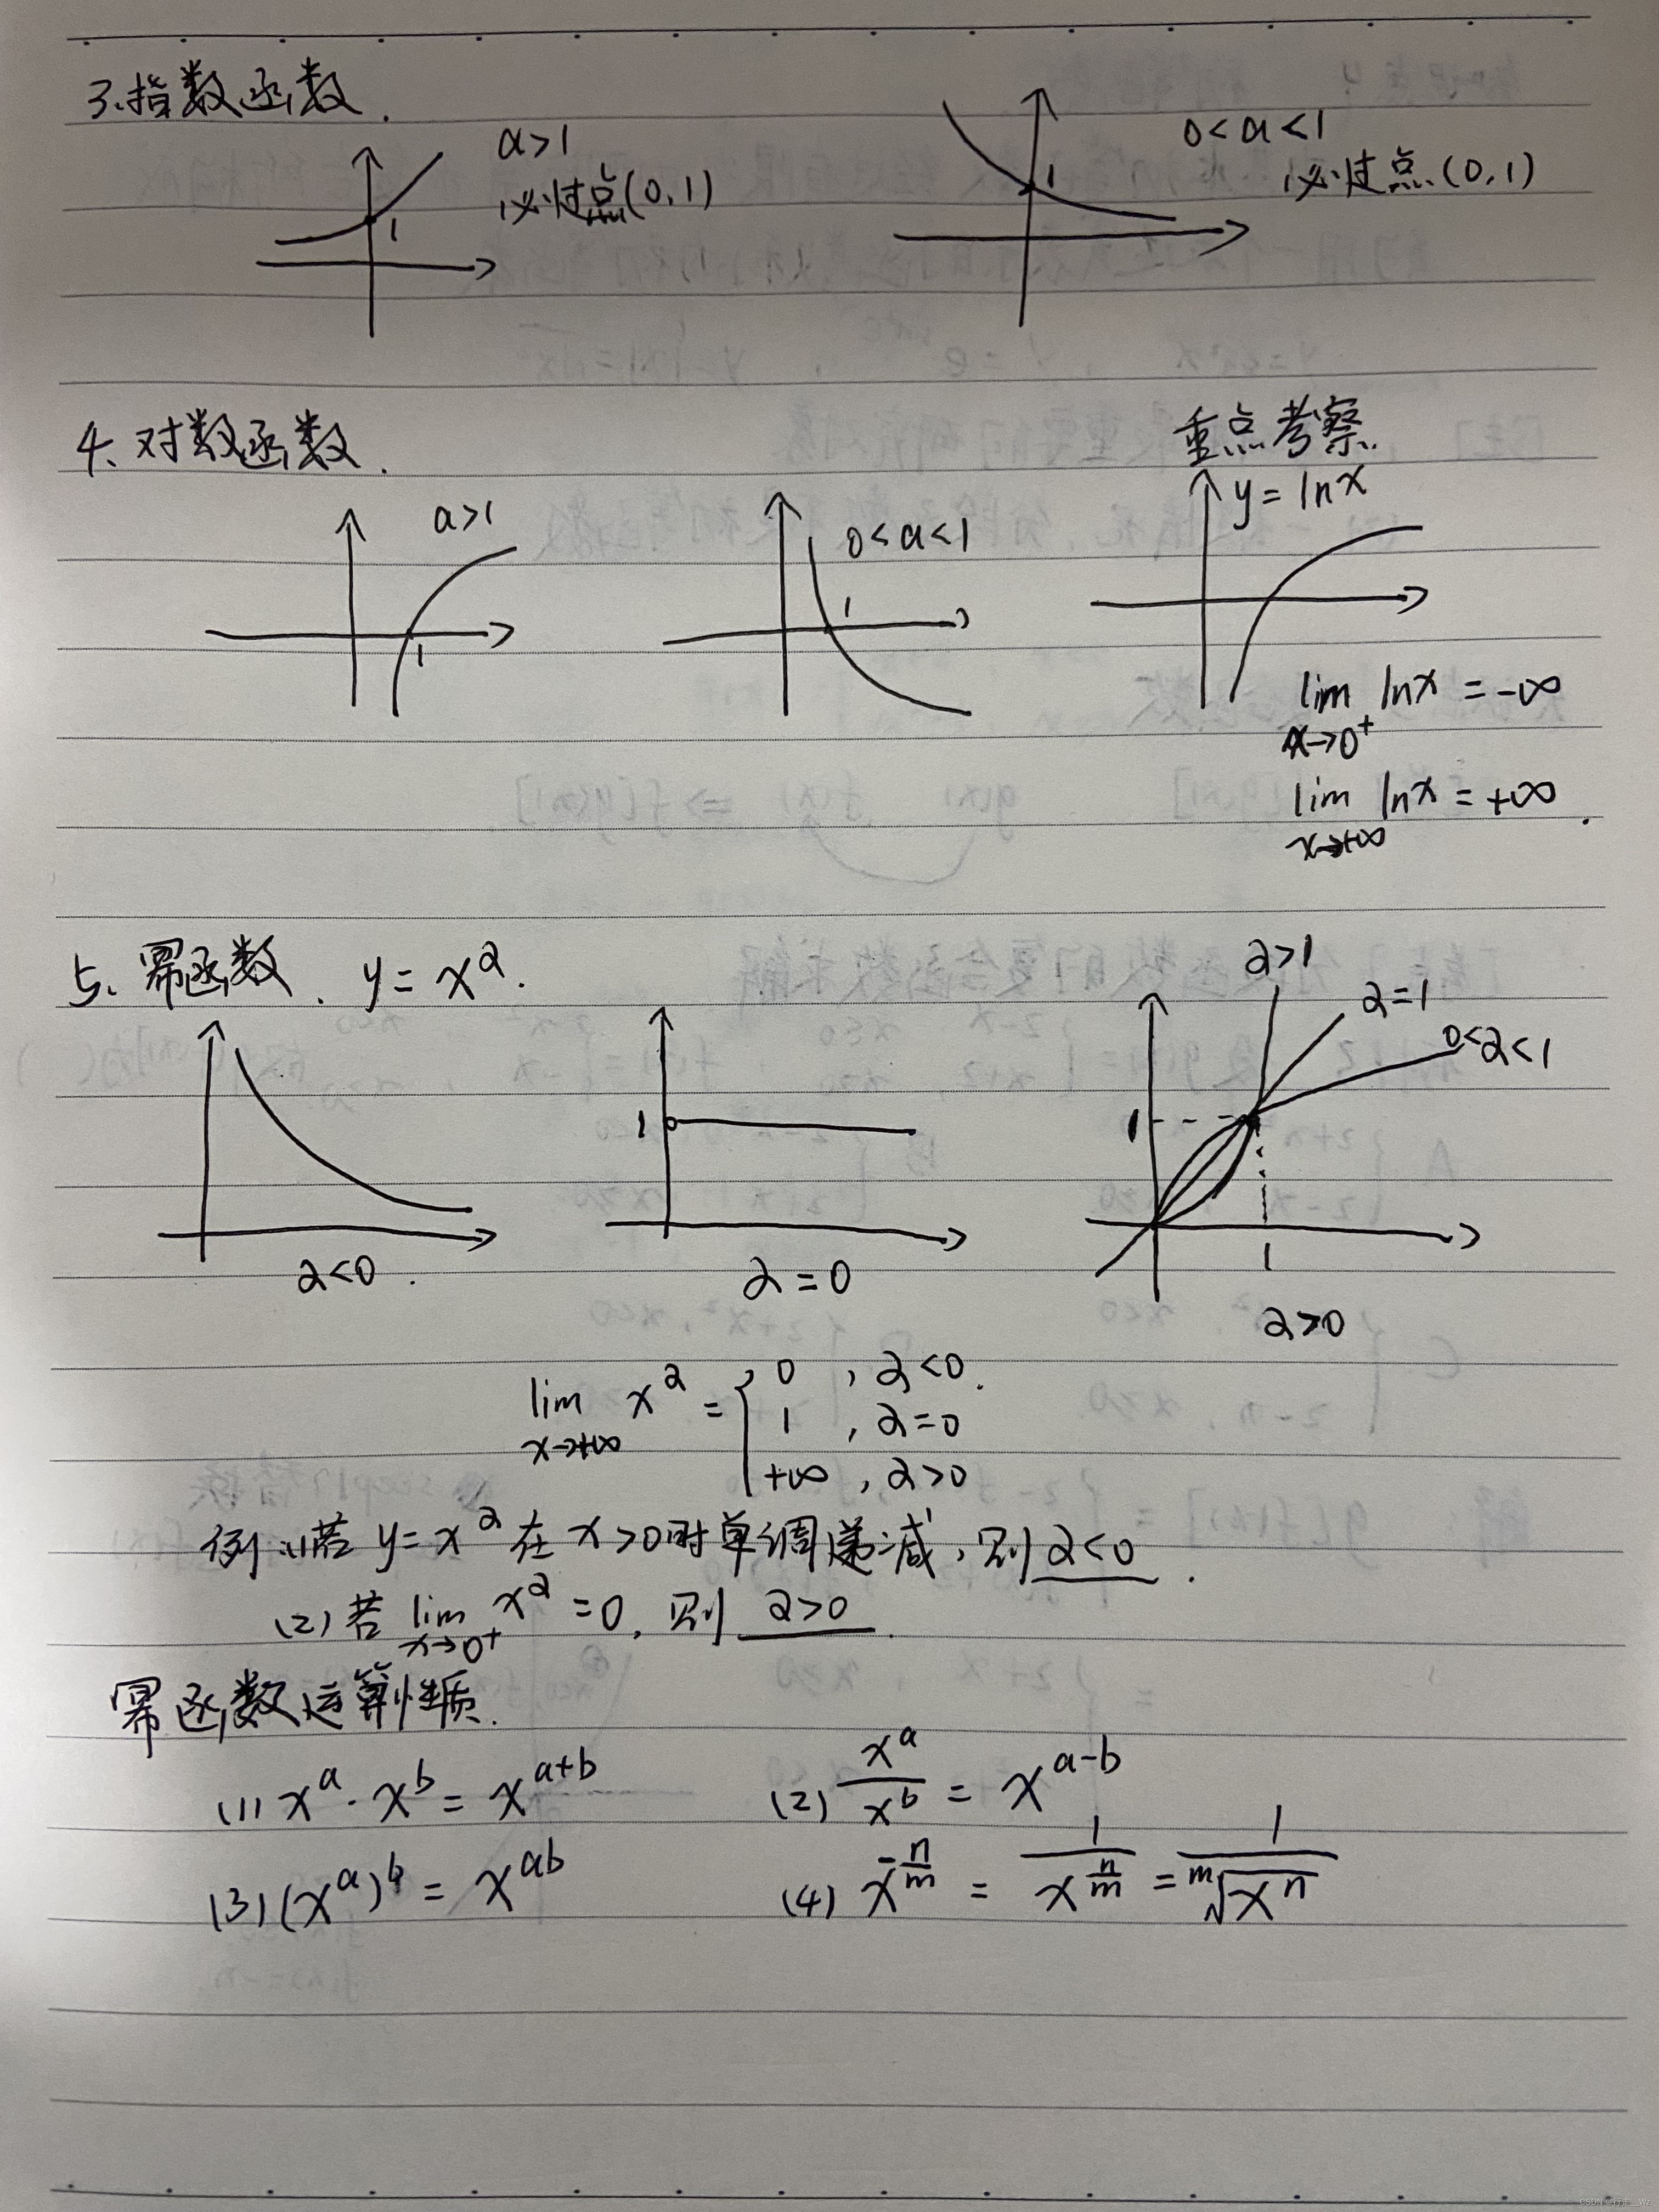 3、指数函数.
a>1
必过点(0,1)
1
0<a<1
必过点(0,1)
1
4、对数函数.
重点考察
a>1
1
0<a<1
1
y=lnx
lim lnx = -∞
x→0⁺
lim lnx = +∞.
x→+∞
5、幂函数. y = x^α.
α<0.
1
α=0
α>1
α=1
0<α<1
1
1
α>0
lim x^α = { 0 , α<0.
x→+∞
1 , α=0
+∞ , α>0
例.(1)若 y=x^α 在 x>0时单调递减,则 α<0.
(2)若 lim x^α =0,则 α>0.
x→0⁺
幂函数运算性质.
(1) x^a · x^b = x^(a+b)
(2) x^a / x^b = x^(a-b)
(3) (x^a)^b = x^(ab)
(4) x^(-n/m) = 1/x^(n/m) = 1/ᵐ√(xⁿ)